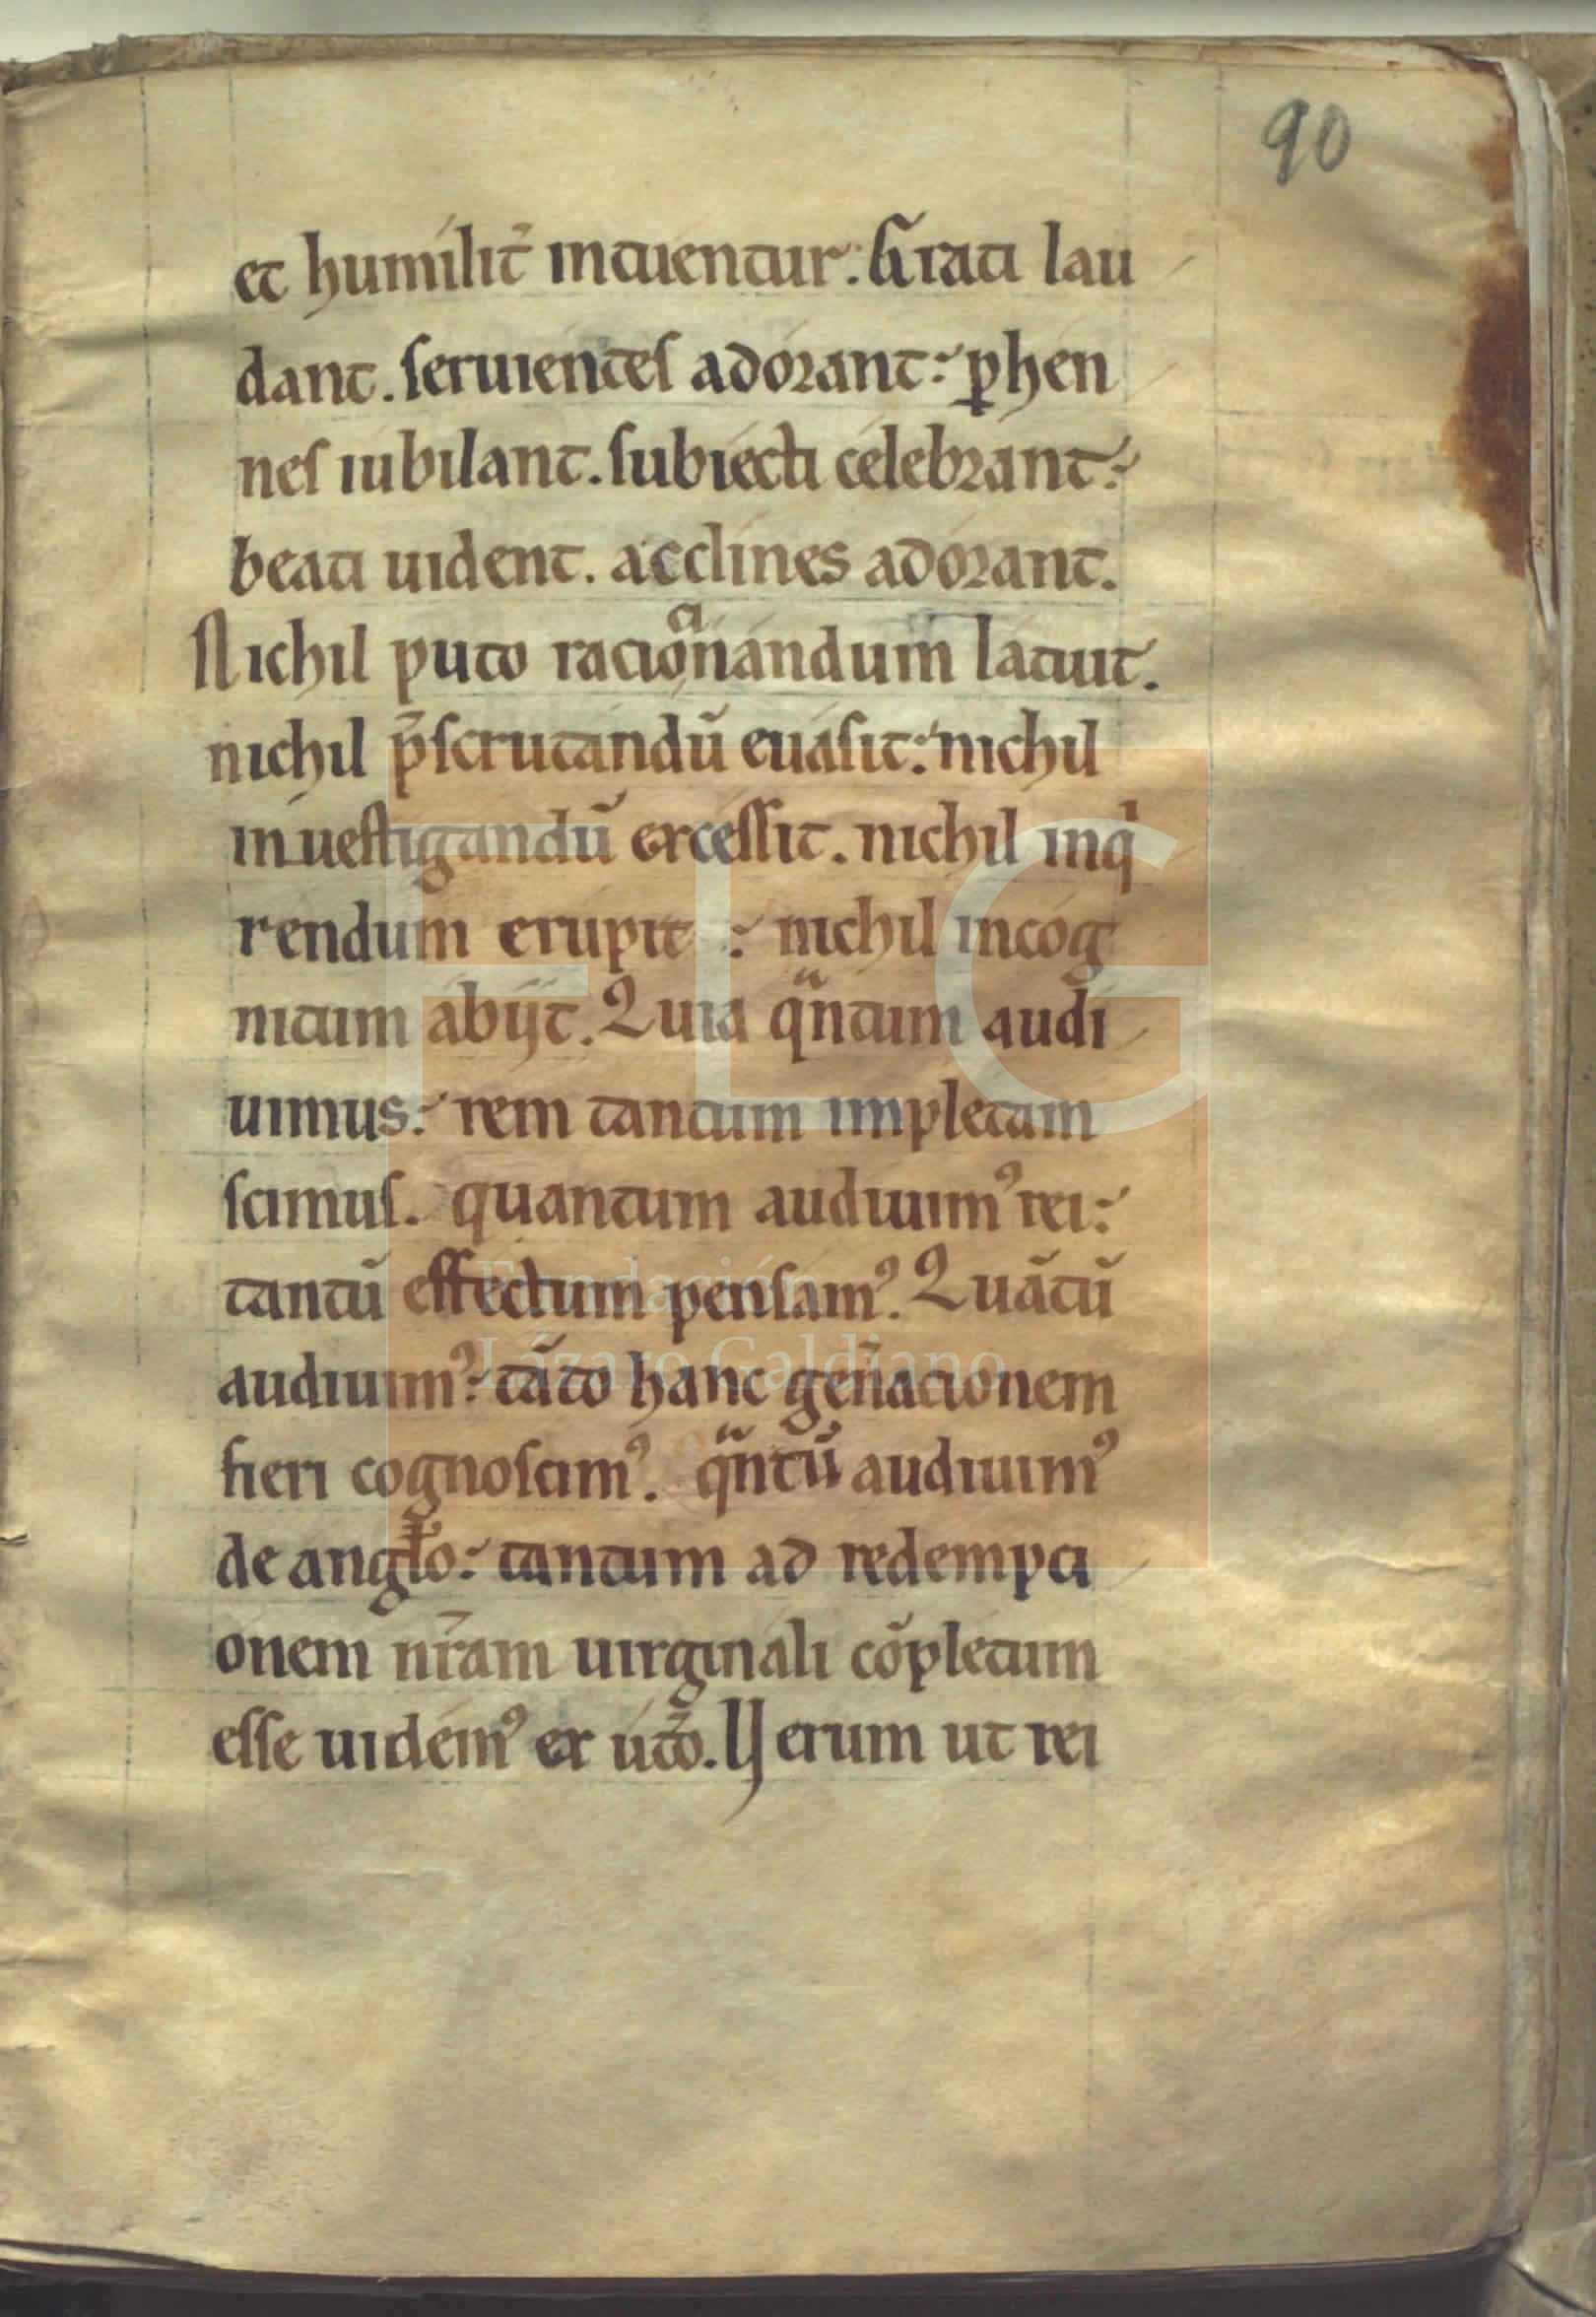 90
et humilit̃ intuentur: Grati lau
dant. seruientes adorant: ꝑhen
nes iubilant. subiecti celebrant:
beati uident. acclines adorant.
Nichil puto racioᵃnandum latuit.
nichil p̃scrutandũ euasit: nichil
inuestigandũ excessit. nichil inqⁱ
rendum erupit : nichil incog
nitum abijt. Quia qᵃntum audi
uimus: rem tantum impletam
scimus. quantum audiuimꝰ rei:
tantũ effectum pensamꝰ. Quãtũ
audiuimꝰ: tãto hanc gen̄acionem
fieri cognoscimꝰ. qᵃntũ audiuimꝰ
de angł̃o: tantum ad redempti
onem nr̃am uirginali cõpletum
esse uidemꝰ ex utõ. Uerum ut rei
FLG
Fundación
Lázaro Galdiano